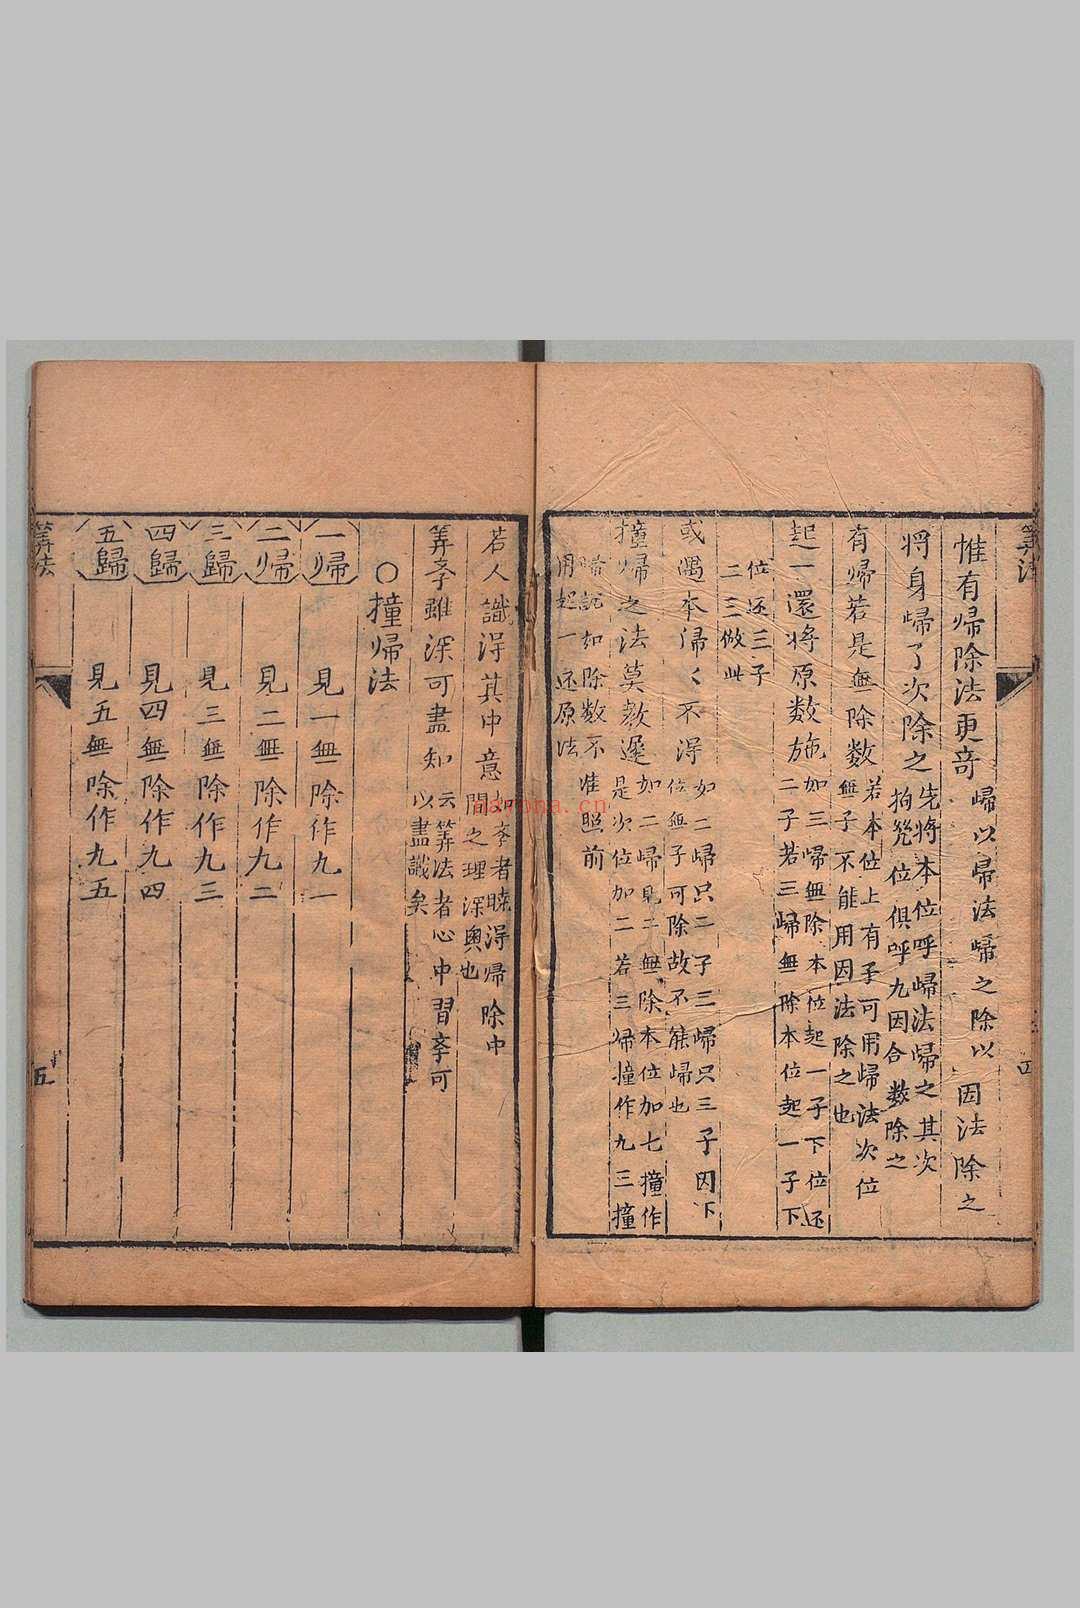 筭法
惟有帰除法更奇 歸以帰法歸之除以因法除之
將身歸了次除之 先將本位呼歸法歸之其次
拘㡬位俱呼九因合數除之
有帰若是無除數 若本位上有子可用歸法次位
無子不能用因法除之也
起一還將原数施 如三歸無除本位起一子下位还
二子若三歸無除本位起一子下
位还三子
二三倣此
或遇本㱕〻不得 如二歸只二子三歸只三子因下
位無子可除故不能歸也
撞帰之法莫教遲 如二歸見二無除本位加七撞作
是次位加二若三帰撞作九三撞
皈說如除数不准照前
用起一还原法
四
若人識淂其中意 者曉淂帰除中
間之理深奧也
筭斈雖深可盡知 云筭法者心中習斈可
以盡識矣
〇撞帰法
一帰 見一無除作九一
二帰 見二無除作九二
三歸 見三無除作九三
四歸 見四無除作九四
五歸 見五無除作九五
筭法
五
nayona.cn